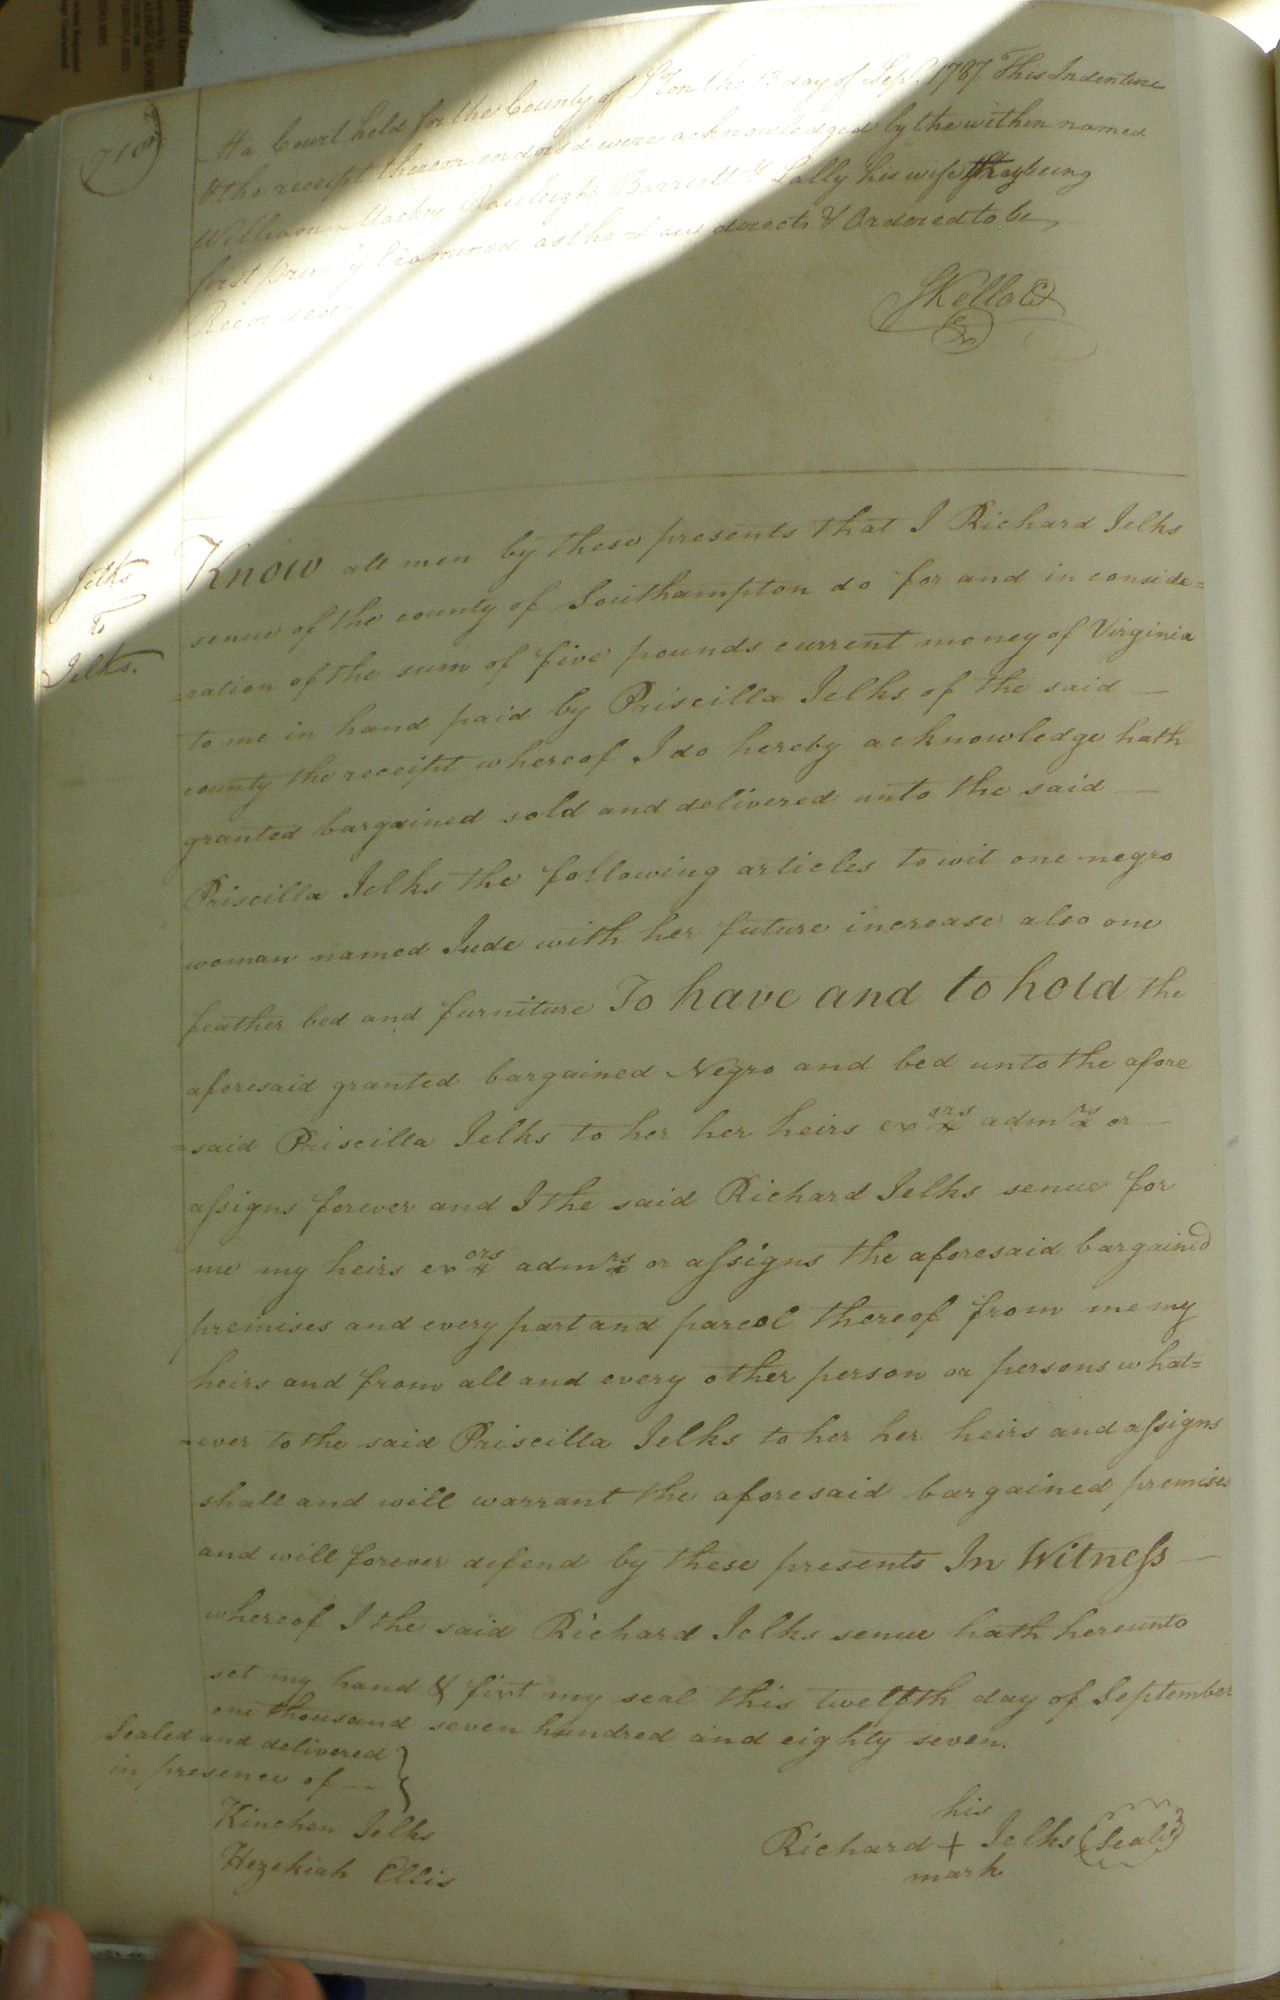 710
At a Court held for the County of S'ton the 13 day of Sept. 1787 This Indenture
& the receipt thereon endorsd were acknowledged by the within named
William Mackey Rawleigh Barrett & Sally his wife they being
first privily Examined as the Law directs & Ordered to be
Recorded
SKello Ct
Jelks
to
Jelks.
Know all men by these presents that I Richard Jelks
senue of the county of Southampton do for and in conside=
=ration of the sum of five pounds current money of Virginia
to me in hand paid by Priscilla Jelks of the said —
county the receipt whereof I do hereby acknowledge hath
granted bargained sold and delivered unto the said —
Priscilla Jelks the following articles to wit one negro
woman named Jude with her future increase also one
feather bed and furniture To have and to hold the
aforesaid granted bargained Negro and bed unto the afore
=said Priscilla Jelks to her her heirs exors admrs or —
assigns forever and I the said Richard Jelks senue for
me my heirs exors admrs or assigns the aforesaid bargained
premises and every part and parcel thereof from me my
heirs and from all and every other person or persons what=
=ever to the said Priscilla Jelks to her her heirs and assigns
shall and will warrant the aforesaid bargained premises
and will forever defend by these presents In Witness —
whereof I the said Richard Jelks senue hath hereunto
set my hand & fixt my seal this twelfth day of September
one thousand seven hundred and eighty seven.
Sealed and delivered
in presence of —
Kinchen Jelks
Hezekiah Ellis
his
Richard + Jelks (Seal)
mark